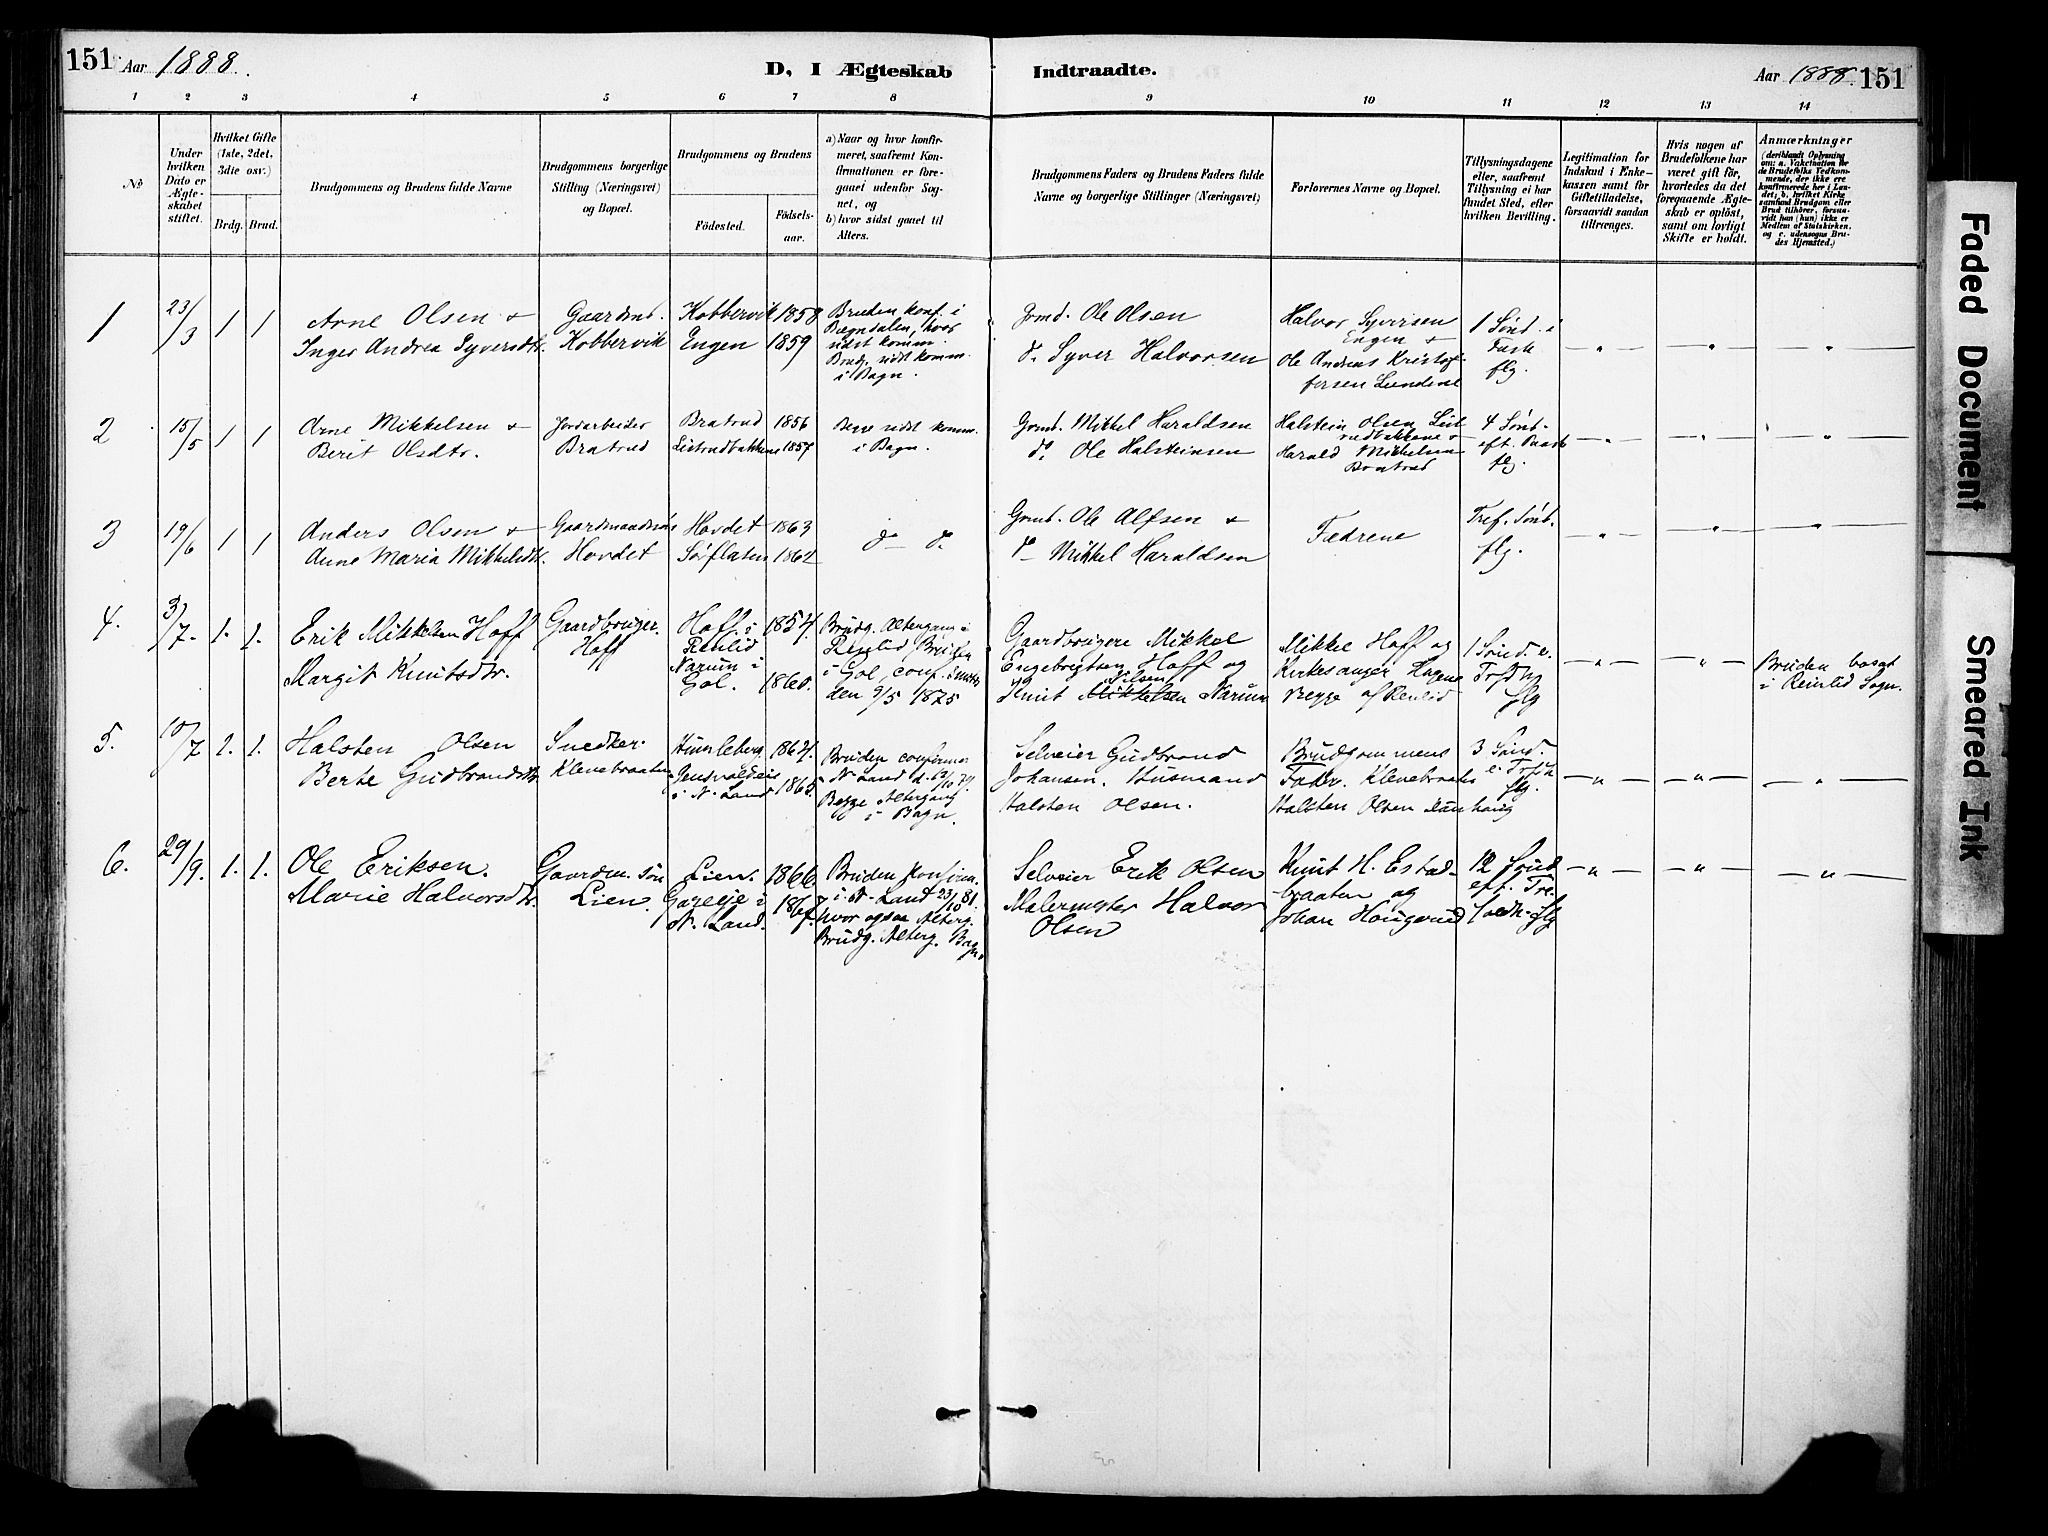 151 Aar 1888.
D, I Ægteskab Indtraadte.
Aar 1888. 151
1 2 3 4 5 6 7 8 9 10 11 12 13 14
No
Under hvilken Dato er Ægteskabet stiftet.
Hvilket Gifte (1ste, 2det, 3die osv.)
Brdg. Brud.
Brudgommens og Brudens fulde Navne
Brudgommens borgerlige Stilling (Næringsvei) og Bopæl.
Brudgommens og Brudens
Fødested.
Fødselsaar.
a) Naar og hvor konfirmeret, saafremt Konfirmationen er foregaaet udenfor Sognet, og
b) hvor sidst gaaet til Alters.
Brudgommens Faders og Brudens Faders fulde Navne og borgerlige Stillinger (Næringsvei)
Forlovernes Navne og Bopæl.
Tillysningsdagene eller, saafremt Tillysning ei har fundet Sted, efter hvilken Bevilling.
Legitimation for Indskud i Enkekassen samt for Giftetilladelse, forsaavidt saadan tiltrænges.
Hvis nogen af Brudefolkene har været gift før, hvorledes da det foregaaende Ægteskab er opløst, samt om lovligt Skifte er holdt.
Anmærkninger
(deriblandt Oplysning om: a. Vakcination for de Brudefolks Vedkommende, der ikke ere konfirmerede her i Landet; b. hvilket Kirkesamfund Brudgom eller Brud tilhører, forsaavidt han (hun) ikke er Medlem af Statskirken, og c. udensogns Brudes Hjemsted.)
1 23/3 1 1
Arne Olsen &
Inger Andrea Syversdtr.
Gaardmd.
Kobbervik
Kobbervik 1858
Engen 1859
Bruden konf. i
Bægndalen, hvor
sidst komm.
Brudg. sidst komm.
i Bagn.
Grmd. Ole Olsen
do. Syver Halvorsen
Halvor Syversen
Engen &
Ole Andreas Kristof-
fersen Lundene
1 Sønd. i
Faste
flg.
2 15/5 1 1
Arne Mikkelsen &
Berit Olsdtr.
Jordarbeider
Bratrud
Bratrud 1856
1857
Bene sidst komm.
i Bagn.
Grmd. Mikkel Haraldsen
do. Ole Halsteinsen
Halstein Olsen
Harald Mikkelsen
Bratrud
4 Sønd.
eft. Paaske
flg.
3 19/6 1 1
Anders Olsen &
Anne Maria Mikkelsdtr.
Hovdet
Hovdet 1863
Sørflaten 1862
do — do.
Grmd. Ole Alfsen &
do — Mikkel Haraldsen
Fædrene
Tref. Sønd.
flg.
4. 3/7. 1. 1.
Erik Mikkelsen Hoff
Margit Knutsdtr.
Gaardbruger.
Hoff
Hoff i 1854.
Reinlid
Narum i
Gol. 1860.
Brudg. Altergang i
Reinlid Bruden
i Gol, conf. smst.
den 9/5 1875
Gaardbrugere Mikkel
Engebrigtsen Hoff og
Nilsen
Knut Mikkelsen Narum
Mikkel Hoff og
Kirkesanger Hagene
Begge af Reinlid
1 Sønd. e.
Trefh
flg
Bruden bosat
i Reinlid Sogn.
5. 10/7 1. 1.
Halsten Olsen
Berte Gudbrandsdtr.
Snedker.
Klevebraaten
1864.
i N. Land 1865
Bruden confirm.
N. Land d. 12/10 79.
Begge Altergang
i Bagn.
Selveier Gudbrand
Johansen. Husmand
Halsten Olsen.
Brudgommens
Fader. Klevebraaten
Halsten Olsen
3 Sønd.
e. Trefh
flg.
6. 29/9. 1. 1.
Ole Eriksen.
Marie Halvorsdtr.
Gaardm. Søn
Lien.
Lien. 1866
i 1867.
N. Land.
Bruden Konfirm.
i N. Land 23/10 81.
hvor ogsaa Alterg.
Brudg. Alterg. Bagn.
Selveier Erik Olsen
Malermester Halvor
Olsen
Knut H. Estad-
braaten og
Johan Hougerud
12 Sønd
eft. Tre-
foldh. flg
Faded Document
Smeared Ink